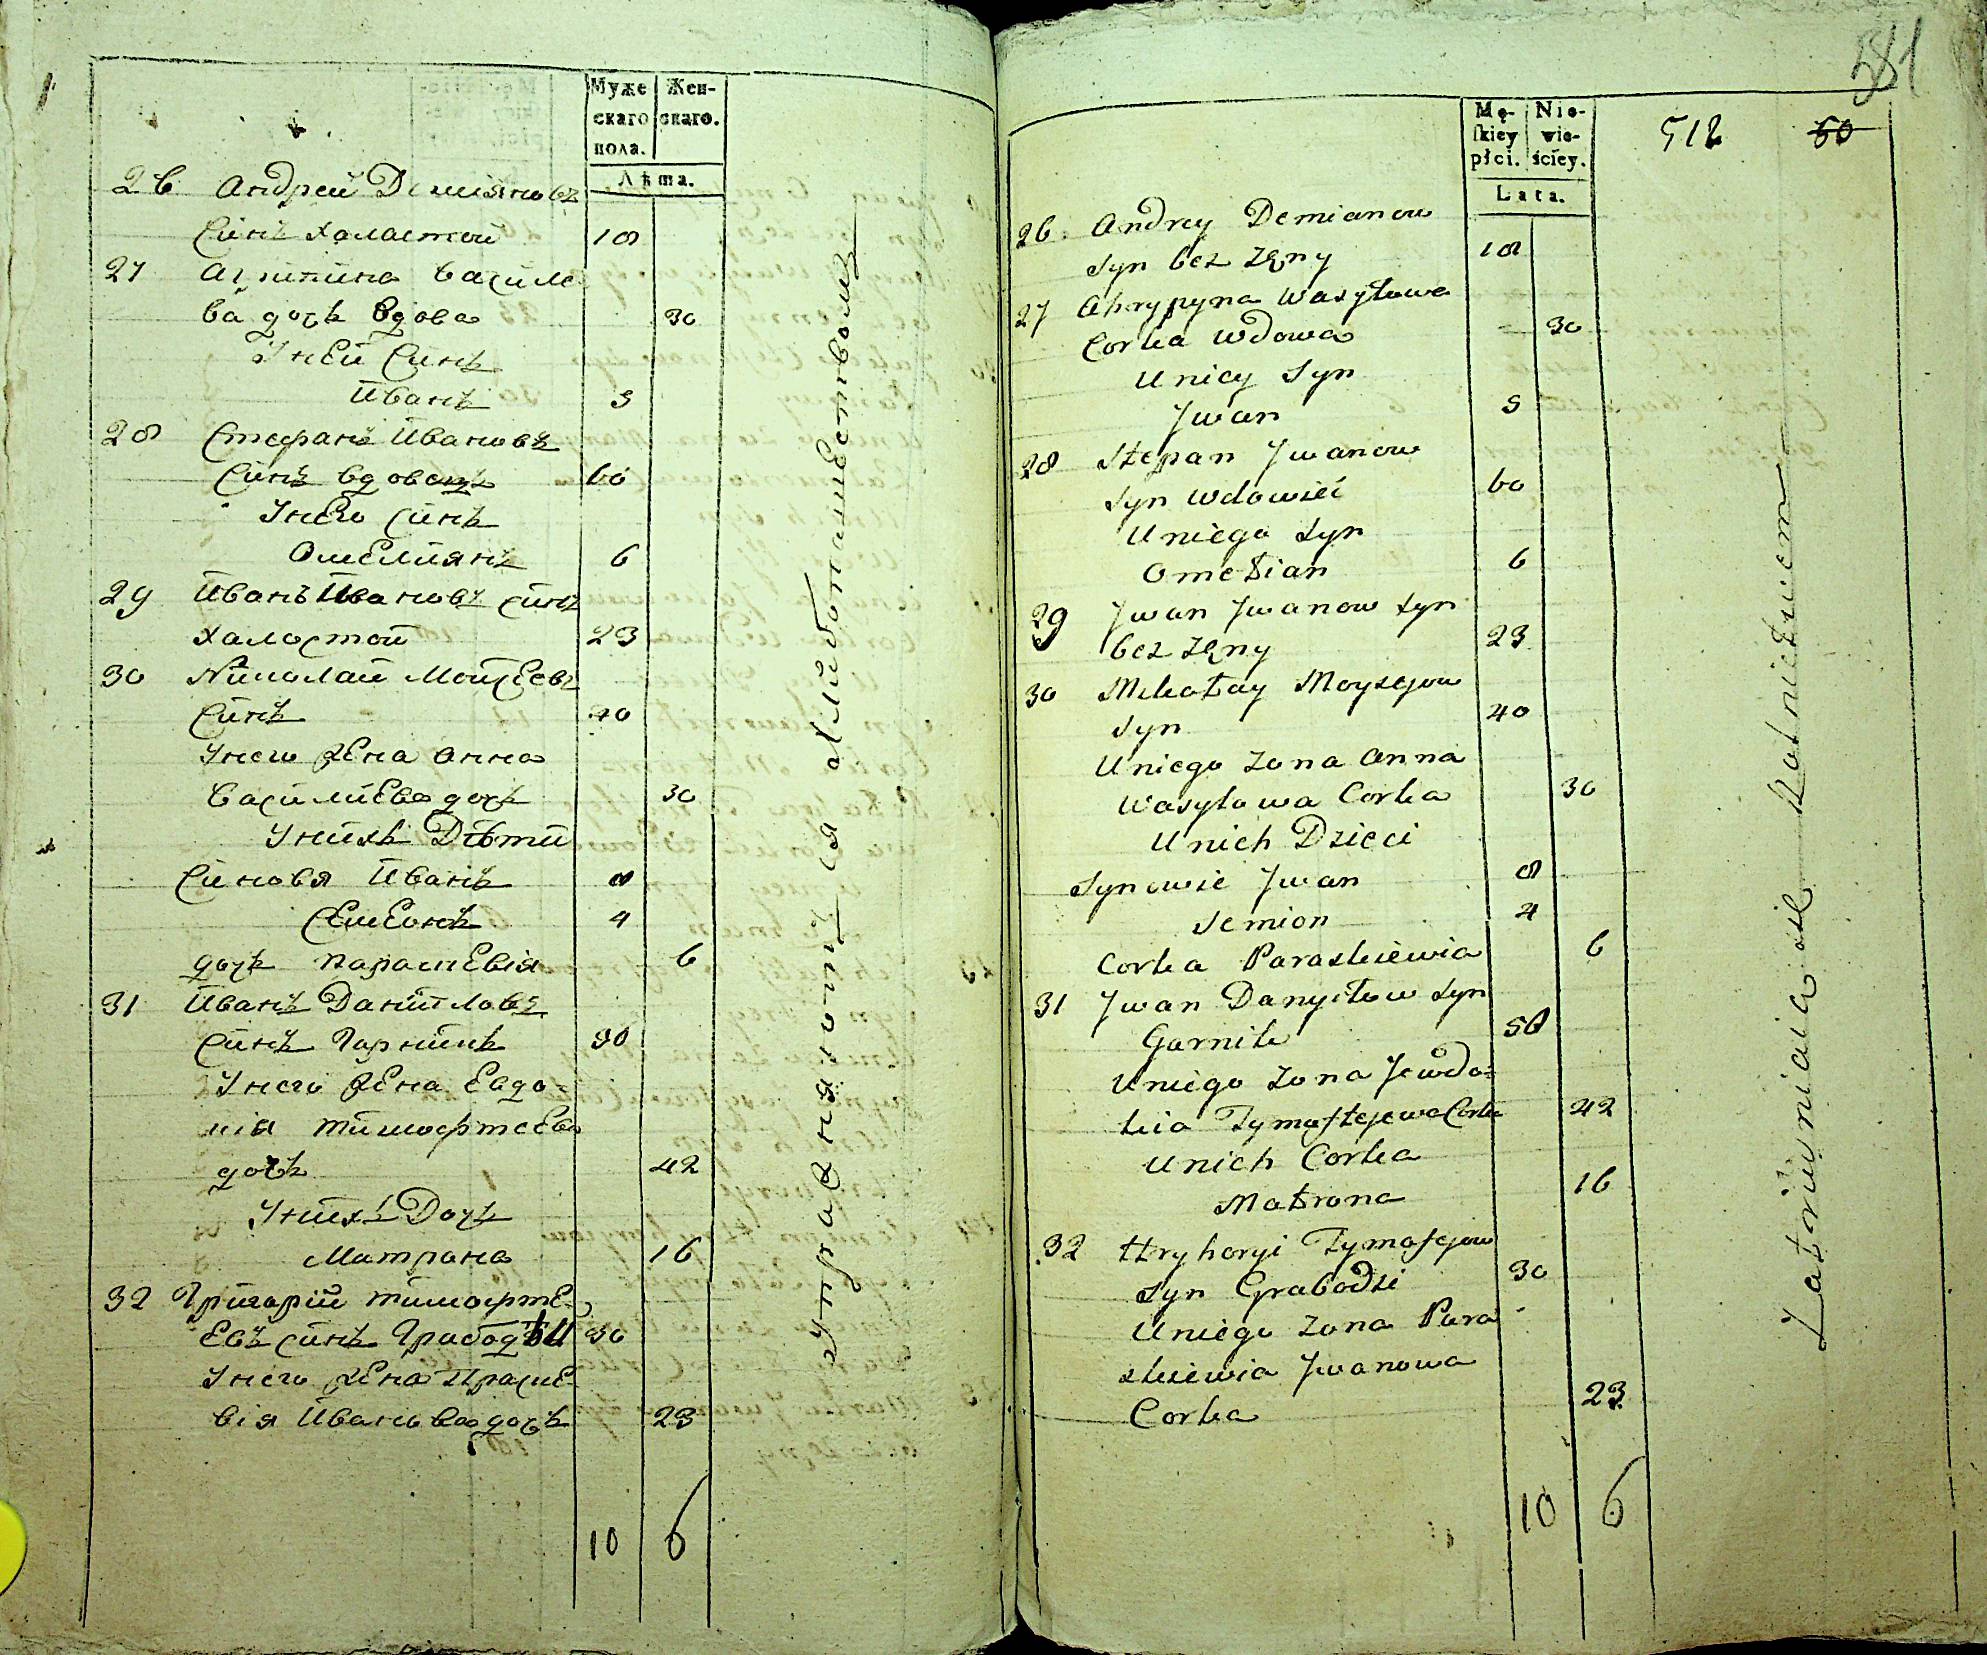 Муже Жен-
скаго скаго.
пола.
Лѣта.
26 Андрей Демияновъ
Синъ халастой 18
27 Агрипина Василе
ва дочь вдова 30
У ней Синъ
Иванъ 5
28 Стефанъ Ивановъ
Синъ вдовецъ 60
У него синъ
Омелиянъ 6
29 Иванъ Ивановъ синъ
халостой 23
30 Николай Мойсеевъ
Синъ 40
У него жена Анна
Василиева дочь 30
У нихъ Дѣти
Синовя Иванъ 8
Семенъ 4
дочь Параскевия 6
31 Иванъ Данииловъ
Синъ Гарникъ 50
У него жена Евдо=
кия тимофтеева
дочь 42
У нихъ Дочь
Матрона 16
32 Григорий тимофте-
евъ синъ Грабодзы 30
У него жена Праске-
вия Иванова дочь 23
10 6
Упражняютъся хлибопашеством
581
Mę- Nie-
skiey wie-
płci. ściey.
Lata.
512 60
26. Andrey Demianow
Syn bez Zęny 18
27 Ahrypyna Wasyłowa
Corka Wdowa 30
U niey Syn
Jwan 5
28 Stepan Jwanow
Syn Wdowieć 60
U niego Syn
Omełian 6
29 Jwan Jwanow Syn
bez Zęny 23
30 Mikołay Moysejow
Syn 40
U niego Zona Anna
Wasyłowa Corka 30
U nich Dzieci
Synowie Jwan 8
Semion 4
Corka Paraskiewia 6
31 Jwan Danyłow Syn
Garnik 50
U niego Zona Jewdo=
kia Tymoftejewa Corka 42
U nich Corka
Matrona 16
32 Hryhoryi Tymofejow
Syn Grabodzi 30
U niego Zona Para
skiewia Jwanowa
Corka 23
10 6
Zatrudniaią się Rolnictwem